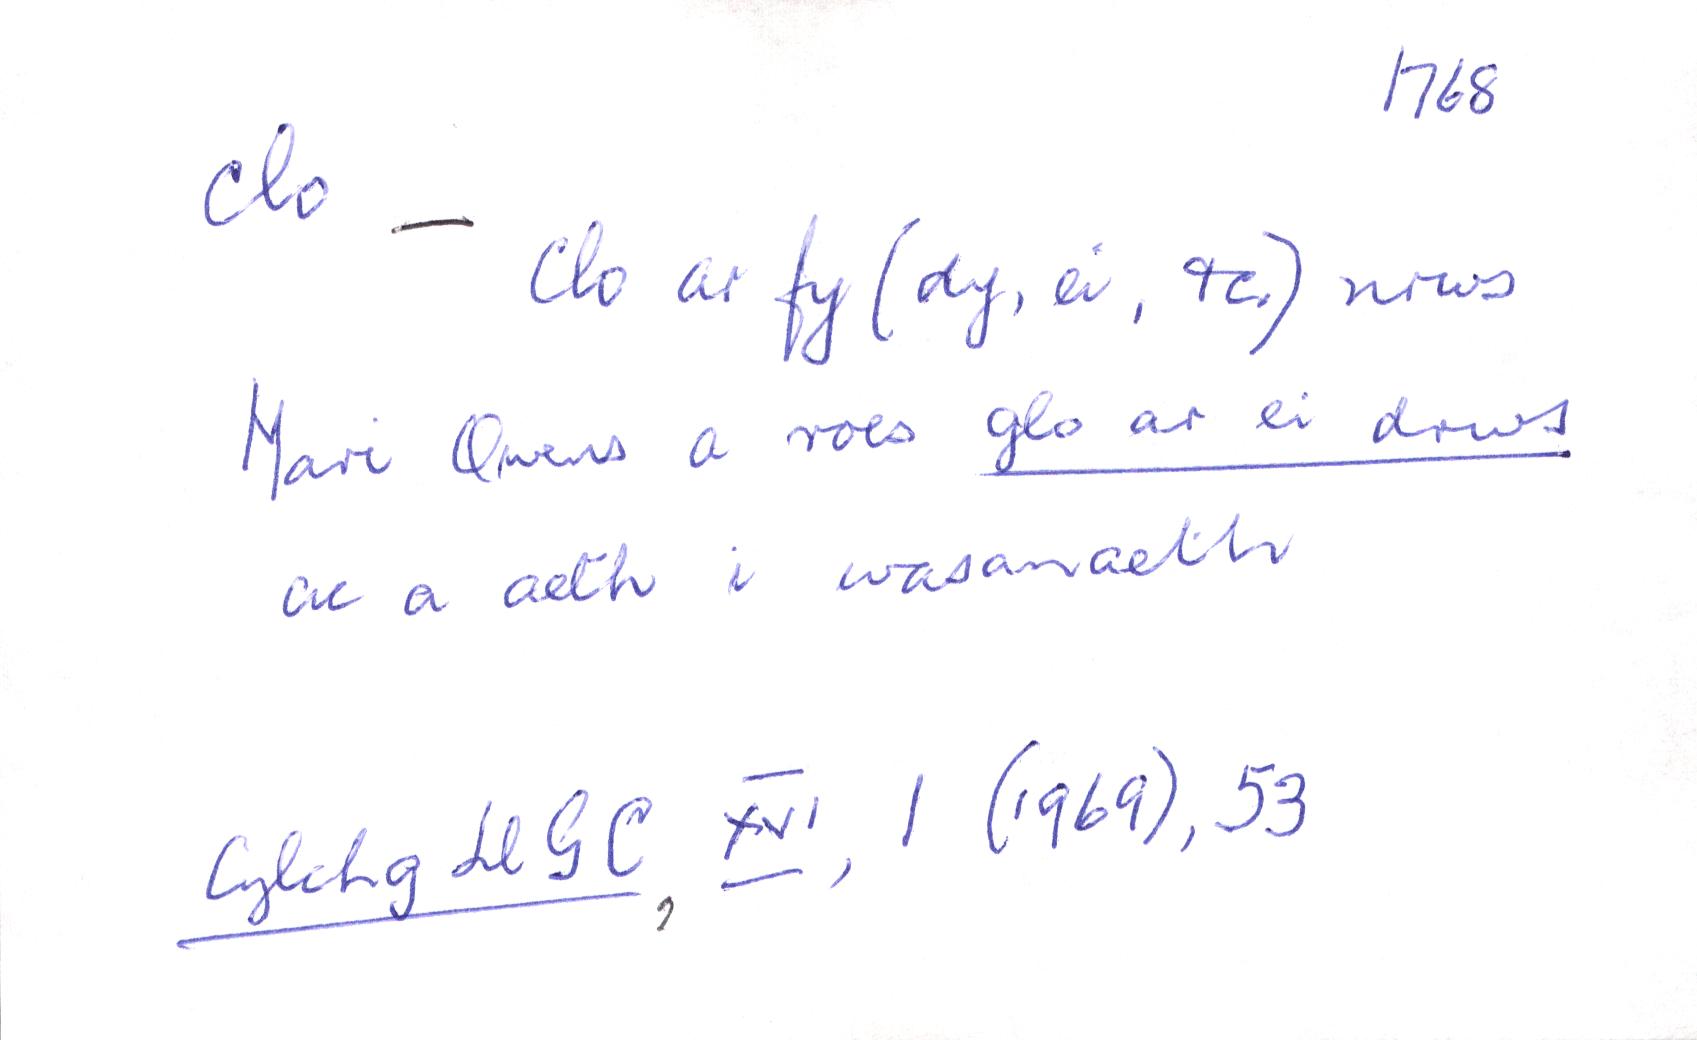 1768
clo —
Clo ar fy (dy, ei, &c.) nrws
Mari Owens a roes glo ar ei drws
ac a aeth i wasanaeth
Cylchg LlGC, XVI, 1 (1969), 53